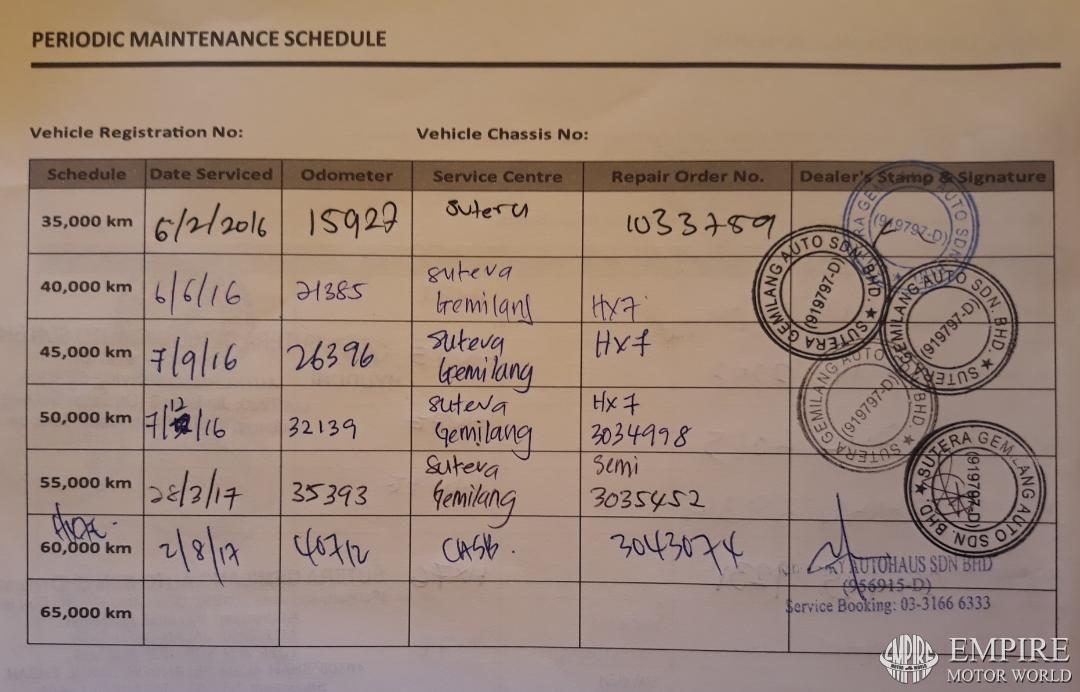 PERIODIC MAINTENANCE SCHEDULE
Vehicle Registration No: Vehicle Chassis No:
Schedule Date Serviced Odometer Service Centre Repair Order No. Dealer's Stamp & Signature
35,000 km 6/2/2016 15927 Sutera 1033789
40,000 km 6/6/16 21385 Suteva Gemilang HX7
45,000 km 7/9/16 26396 Suteva Gemilang HX7
50,000 km 7/12/16 32139 Suteva Gemilang HX7 3034998
55,000 km 28/3/17 35393 Suteva Gemilang Semi 3035452
60,000 km 2/8/17 40712 CASB. 3043074
65,000 km
SUTERA GEMILANG AUTO SDN. BHD. (919797-D)
SUTERA GEMILANG AUTO SDN. BHD. (919797-D)
SUTERA GEMILANG AUTO SDN. BHD. (919797-D)
SUTERA GEMILANG AUTO SDN. BHD. (919797-D)
AUTOHAUS SDN BHD
(956915-D)
Service Booking: 03-3166 6333
EMPIRE
MOTOR WORLD